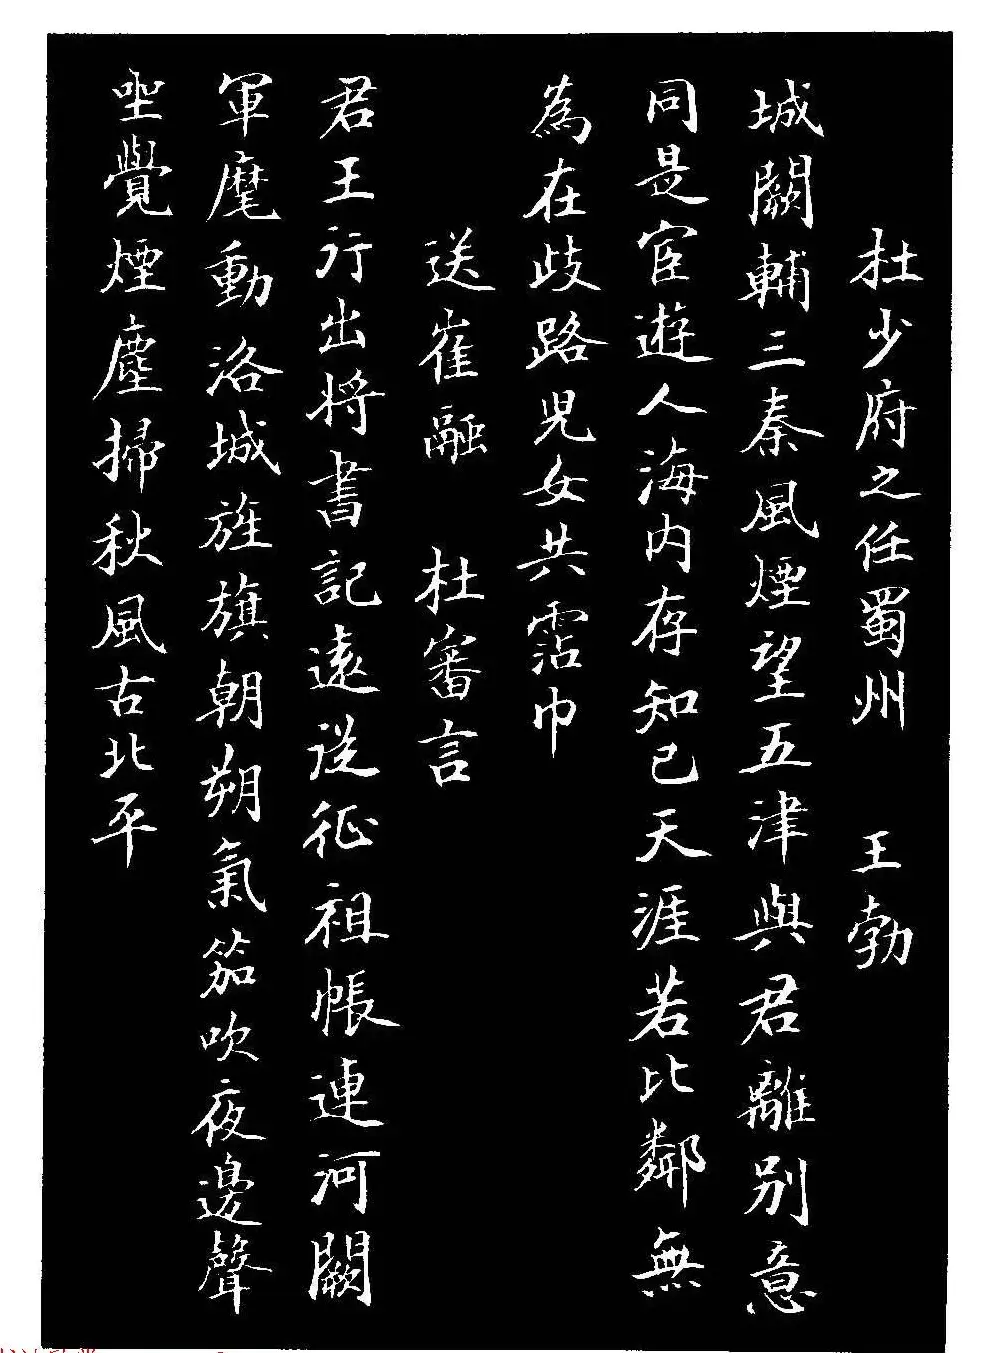 杜少府之任蜀州 王勃
城闕輔三秦風煙望五津與君離別意
同是宦遊人海內存知己天涯若比鄰無
為在歧路兒女共霑巾
送崔融 杜審言
君王行出將書記遠從征祖帳連河闕
軍麾動洛城旌旗朝朔氣笳吹夜邊聲
坐覺煙塵掃秋風古北平